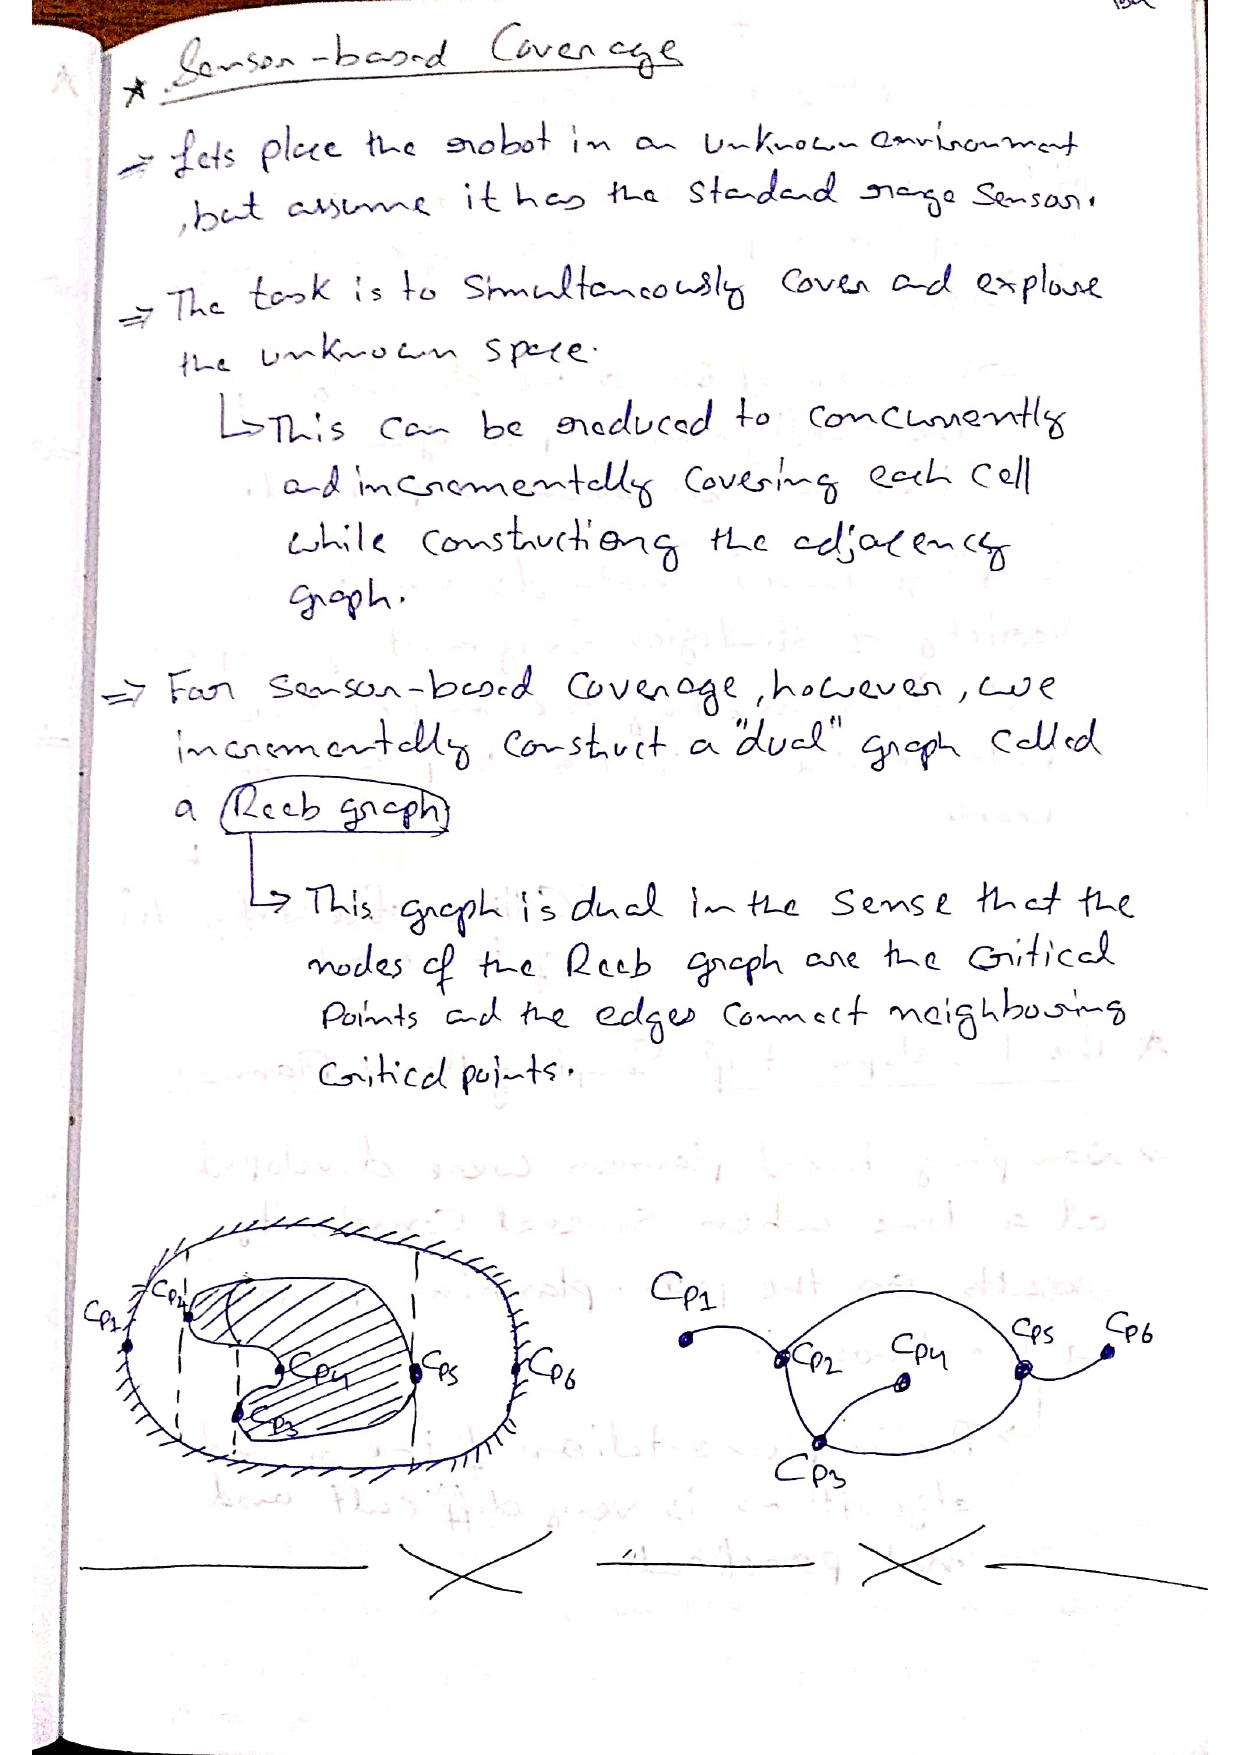 * Sensor-based Coverage
⇒ Lets place the robot in an unknown environment
, but assume it has the standard range sensor.
⇒ The task is to Simultaneously cover and explore
the unknown space.
↳ This can be reduced to concurrently
and incrementally covering each cell
while constructiong the adjacency
graph.
⇒ For sensor-based coverage, however, we
incrementally construct a "dual" graph called
a Reeb graph
↳ This graph is dual in the sense that the
nodes of the Reeb graph are the critical
Points and the edges connect neighbouring
critical points.
Cp1 Cp2 Cp4 Cp3 Cp5 Cp6
Cp1 Cp2 Cp4 Cp5 Cp6
Cp3